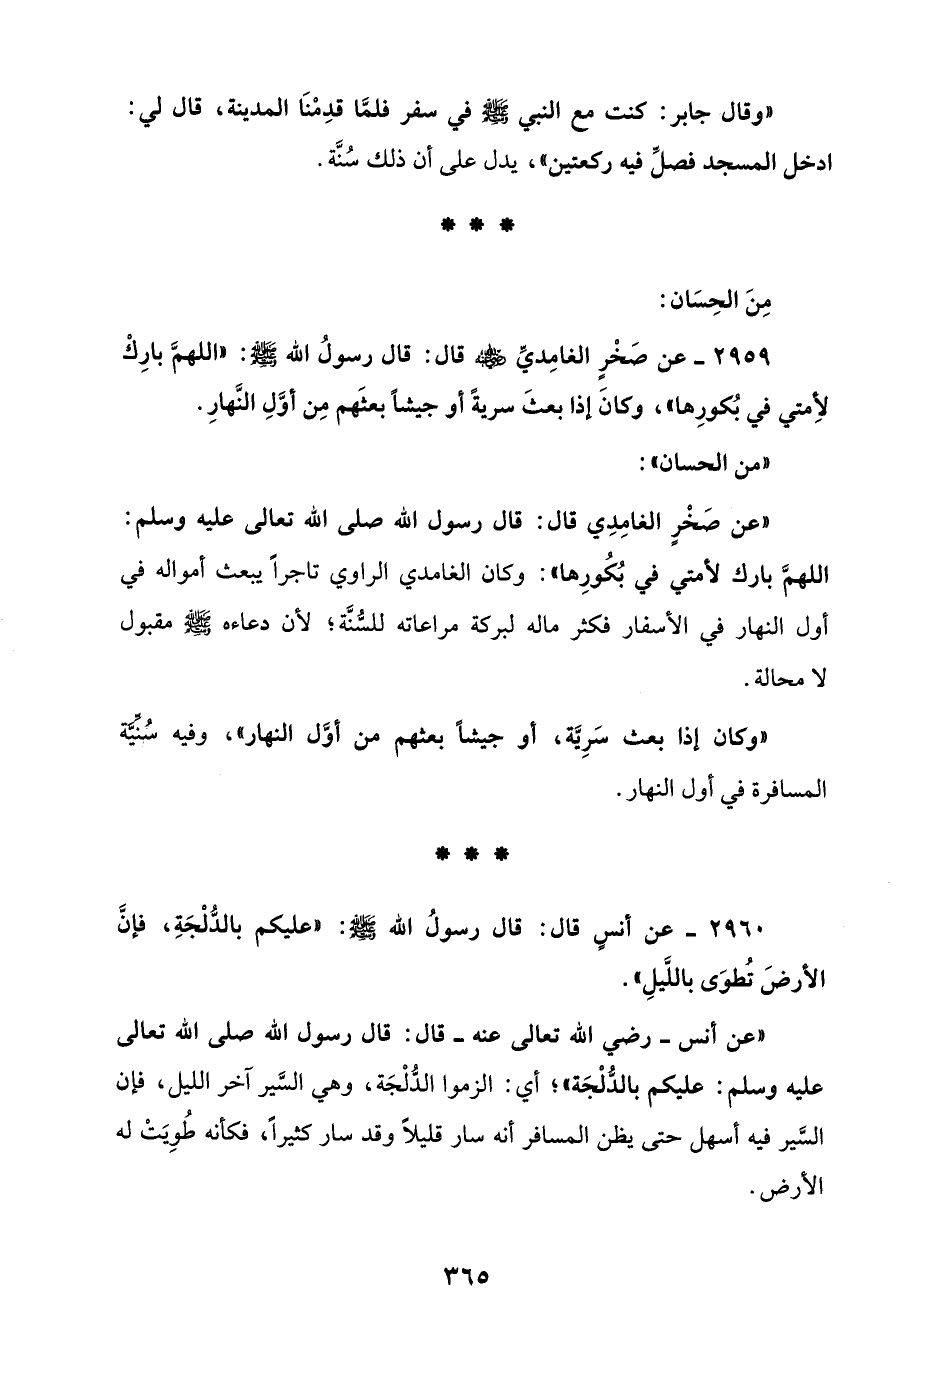 «وقال جابر: كنت مع النبي ﷺ في سفر فلمَّا قدِمْنَا المدينة، قال لي:
ادخل المسجد فصلِّ فيه ركعتين»، يدل على أن ذلك سُنَّة.
* * *
مِنَ الحِسَان:
٢٩٥٩ ـ عن صَخْرٍ الغامِديِّ ﵁ قال: قال رسولُ الله ﷺ: «اللهمَّ بارِكْ
لأِمتي في بُكورِها»، وكانَ إذا بعثَ سريةً أو جيشاً بعثَهم مِن أوَّلِ النَّهارِ.
«من الحسان»:
«عن صَخْرٍ الغامِدِي قال: قال رسول الله صلى الله تعالى عليه وسلم:
اللهمَّ بارك لأمتي في بُكُورِها»: وكان الغامدي الراوي تاجراً يبعث أمواله في
أول النهار في الأسفار فكثر ماله لبركة مراعاته للسُّنَّة؛ لأن دعاءه ﷺ مقبول
لا محالة.
«وكان إذا بعث سَرِيَّة، أو جيشاً بعثهم من أوَّل النهار»، وفيه سُنِّيَّة
المسافرة في أول النهار.
* * *
٢٩٦٠ ـ عن أنسٍ قال: قال رسولُ الله ﷺ: «عليكم بالدُّلْجَةِ، فإنَّ
الأرضَ تُطوَى باللَّيلِ».
«عن أنس ـ رضي الله تعالى عنه ـ قال: قال رسول الله صلى الله تعالى
عليه وسلم: عليكم بالدُّلْجَة»؛ أي: الزموا الدُّلْجَة، وهي السَّير آخر الليل، فإن
السَّير فيه أسهل حتى يظن المسافر أنه سار قليلاً وقد سار كثيراً، فكأنه طُوِيَتْ له
الأرض.
٣٦٥